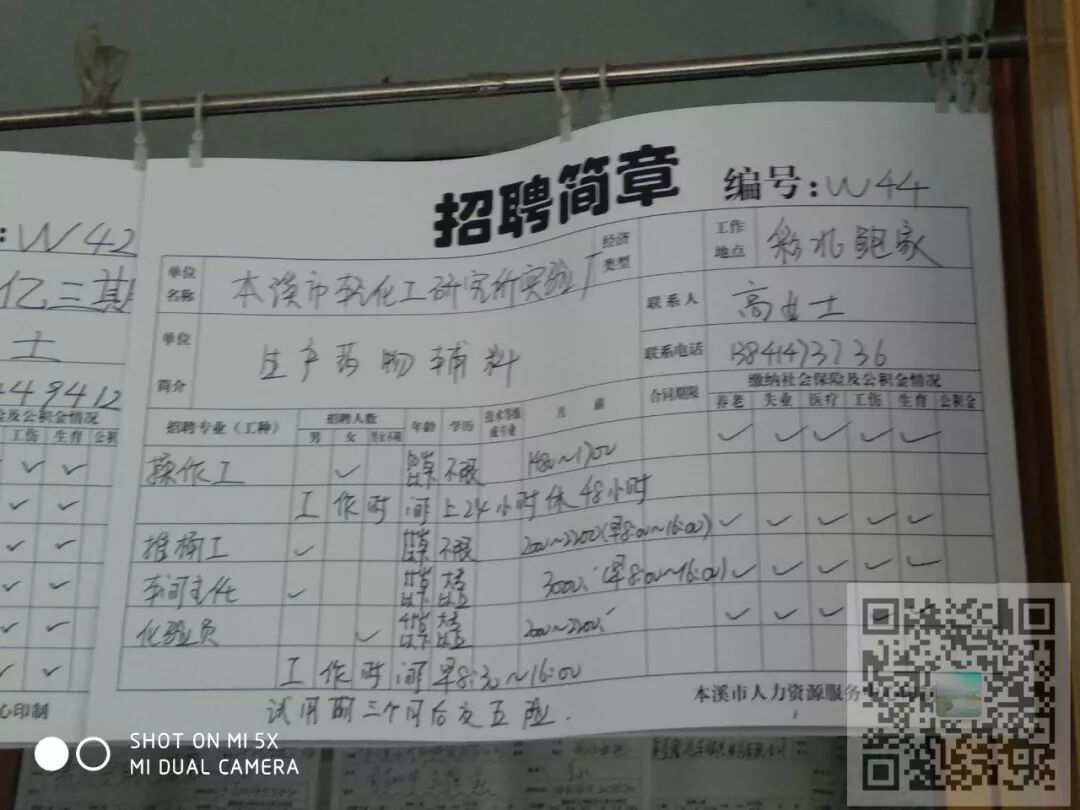 招聘简章
编号:W44
单位名称 本溪市轻化工研究所实验厂 经济类型 工作地点 彩北鲍家
单位简介 生产药物辅料 联系人 高女士
联系电话 13841473736
招聘专业(工种) 招聘人数 男 女 男女不限 年龄 学历 技术等级或专业 月薪 合同期限 缴纳社会保险及公积金情况
养老 失业 医疗 工伤 生育 公积金
操作工 ✓ 以下 不限 1400~1700 ✓ ✓ ✓ ✓ ✓
工作时间 上24小时休48小时
推桶工 ✓ 以下 不限 2000~2200(早8:00~16:00) ✓ ✓ ✓ ✓ ✓
车间主任 ✓ 以下 大专以上 3000.(早8:00~16:00) ✓ ✓ ✓ ✓ ✓
化验员 ✓ 45岁以下 大专以上 2000~2200. ✓ ✓ ✓ ✓ ✓
工作时间 早8:30~16:00
试用期三个月后交五险.
本溪市人力资源服务
:W42
亿三期
士
49412
金及公积金情况
工伤 生育 公积
心印制
SHOT ON MI 5X
MI DUAL CAMERA